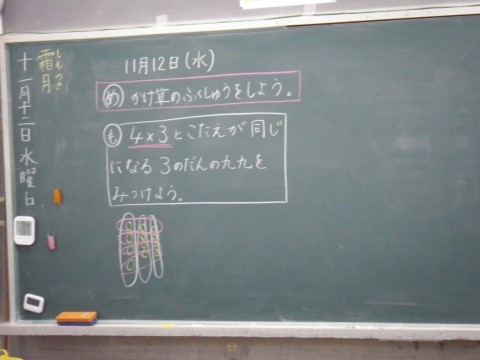 霜月
しもつき
十一月十二日水曜日
11月12日(水)
め かけ算のふくしゅうをしよう。
も 4×3とこたえが同じ
になる3のだんの九九を
みつけよう。